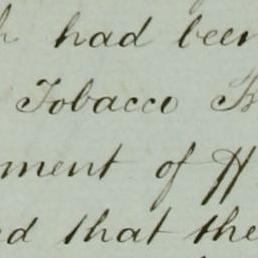 h had been
Tobacco
ment of H
ed that the